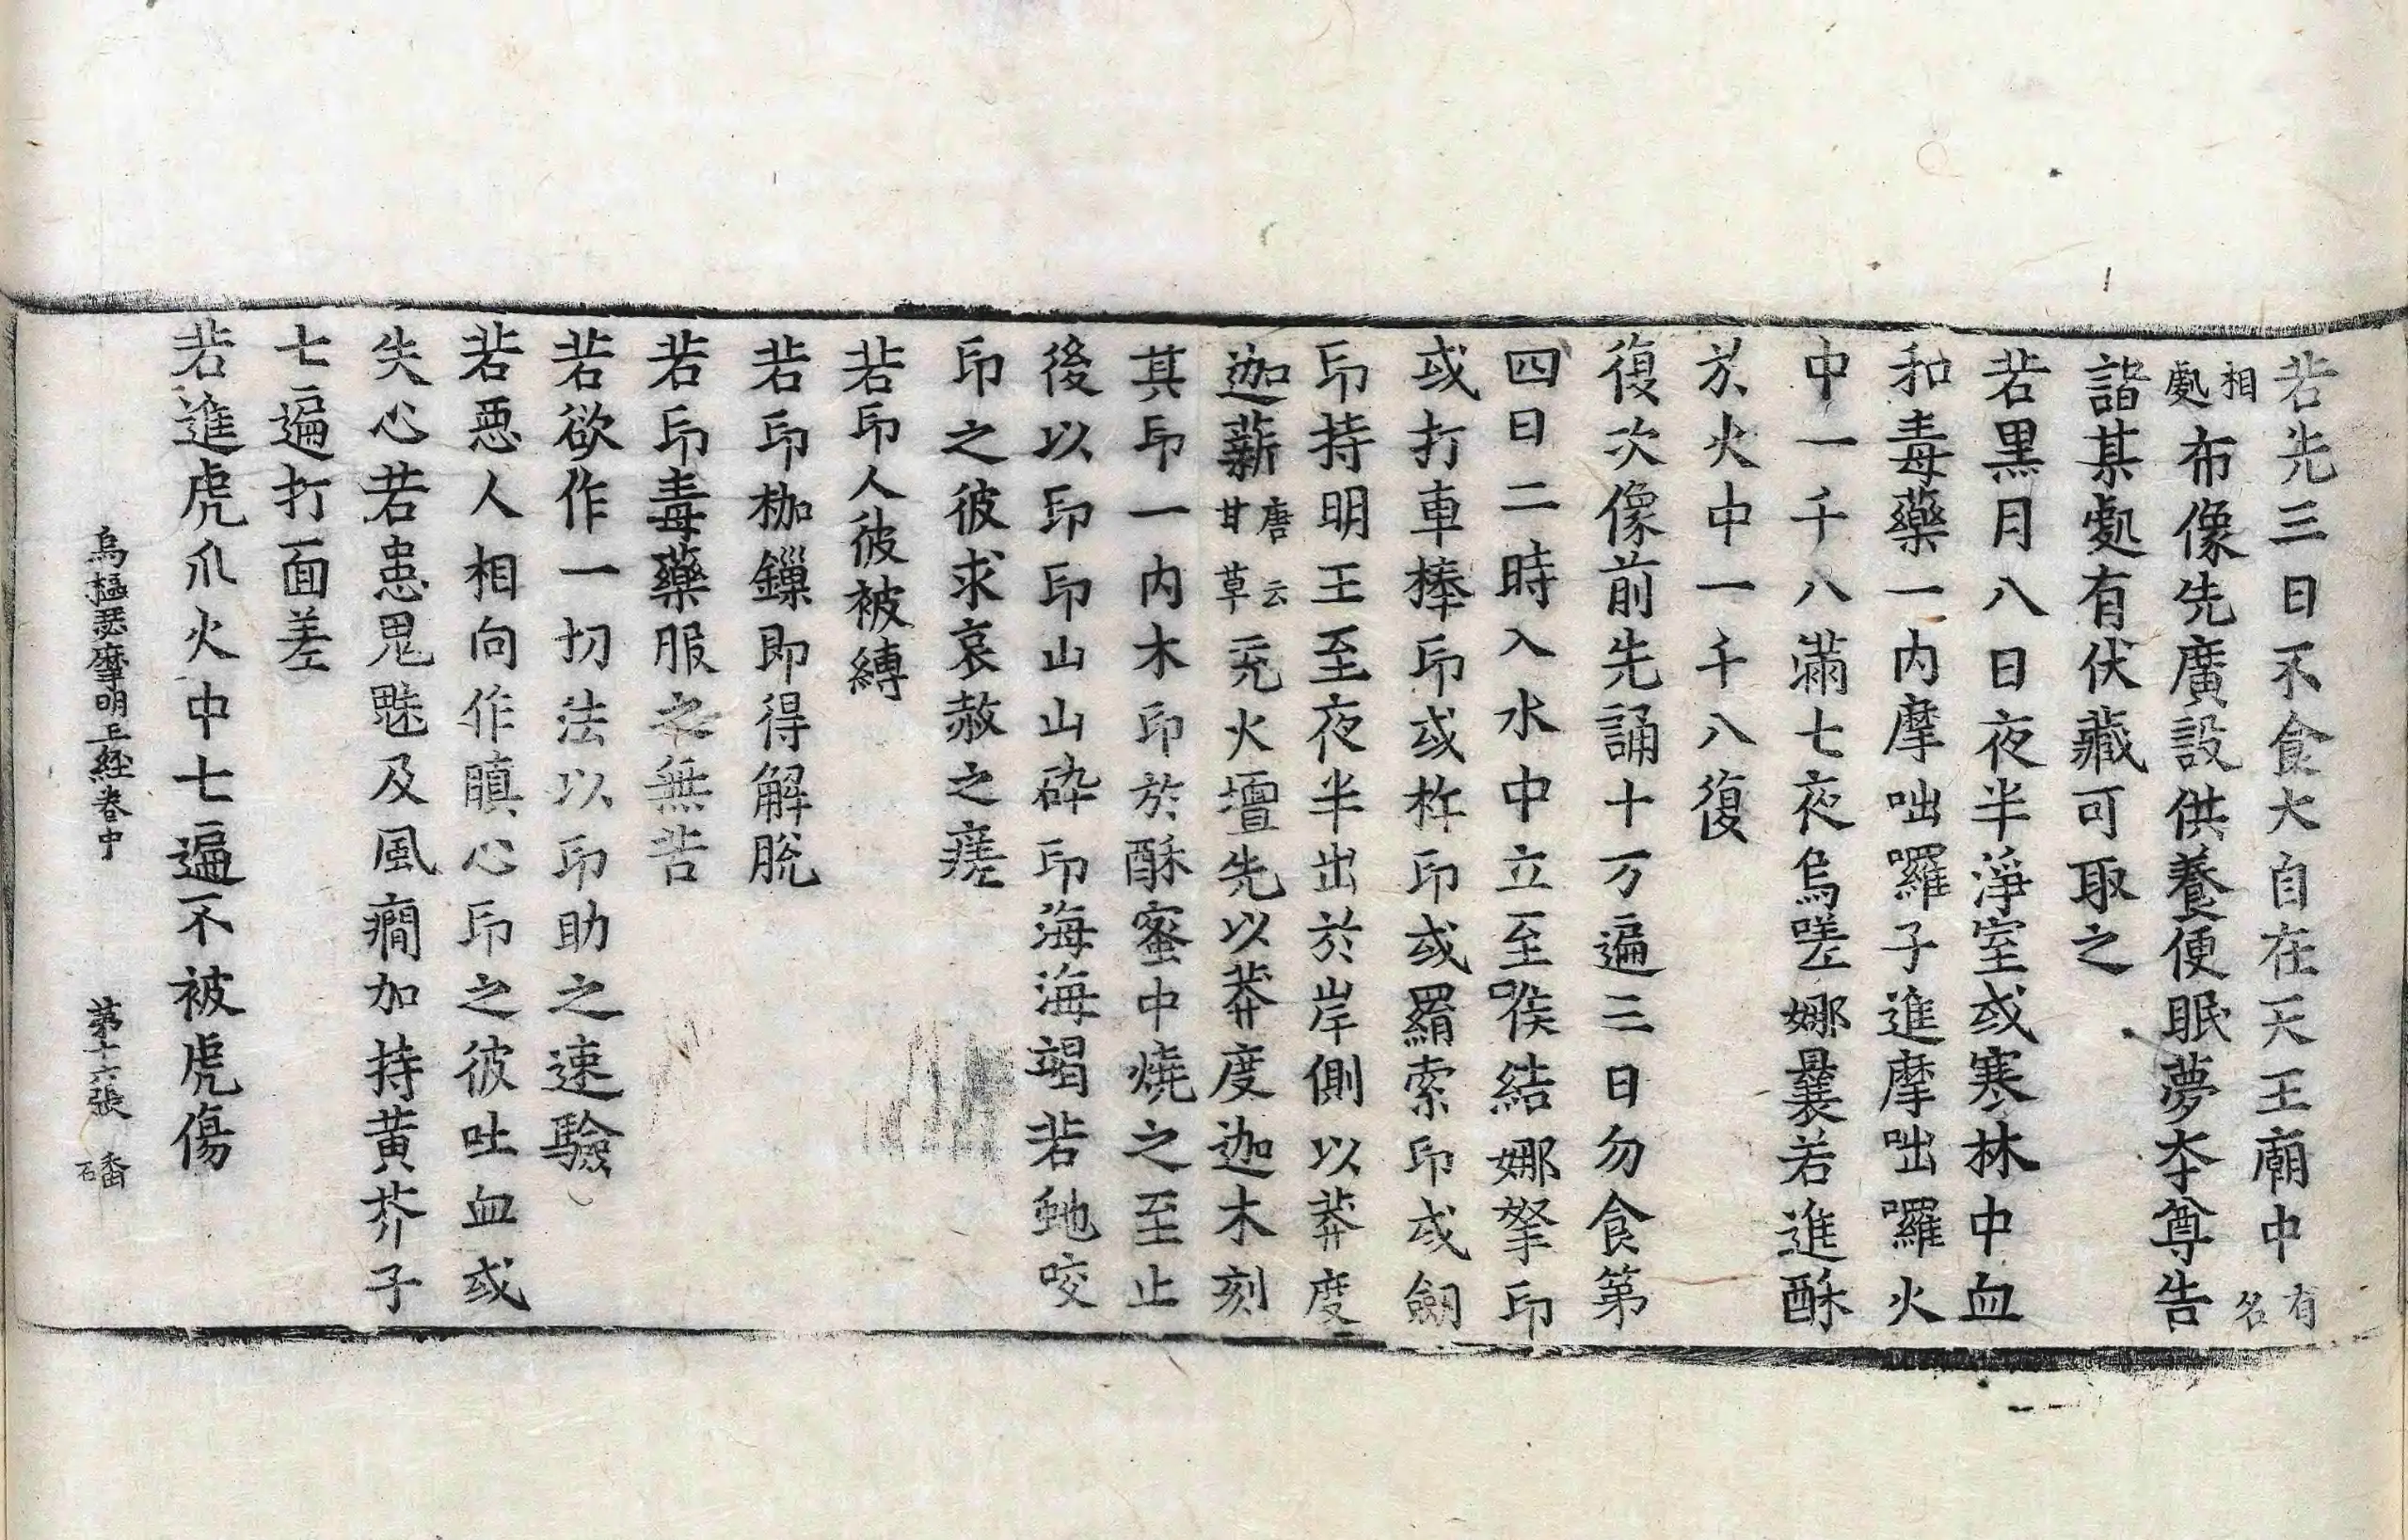 若先三日不食大自在天王廟中有名
相處布像先廣設供養便眠夢本尊告
諧某處有伏藏可取之
若黑月八日夜半淨室或寒林中血
和毒藥一内摩咄囉子進摩咄囉火
中一千八滿七夜烏嗟娜曩若進酥
於火中一千八復
復次像前先誦十万遍三日勿食第
四日二時入水中立至喉結娜拏印
或打車棒印或杵印或羂索印或劒
印持明王至夜半出於岸側以莽度
迦薪唐云甘草充火壇先以莽度迦木刻
其印一内木印於酥蜜中燒之至止
後以印印山山碎印海海竭若虵咬
印之彼求哀赦之瘥
若印人彼被縛
若印枷鏁即得解脫
若印毒藥服之無苦
若欲作一切法以印助之速驗
若惡人相向作瞋心印之彼吐血或
失心若患鬼魅及風癎加持黄芥子
七遍打面差
若進虎爪火中七遍不被虎傷
烏樞瑟摩明王経卷中 第十六張 磻